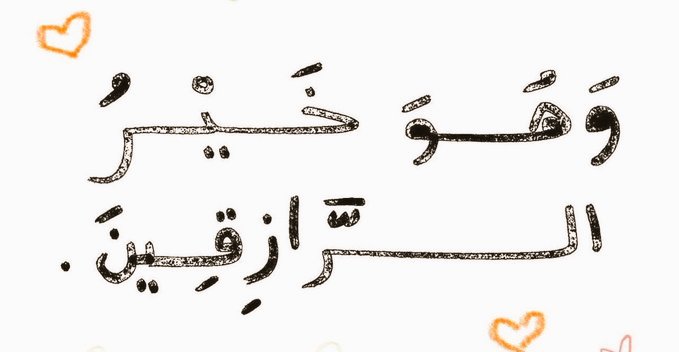 وَهُوَ خَيْرُ
الرَّازِقِينَ.